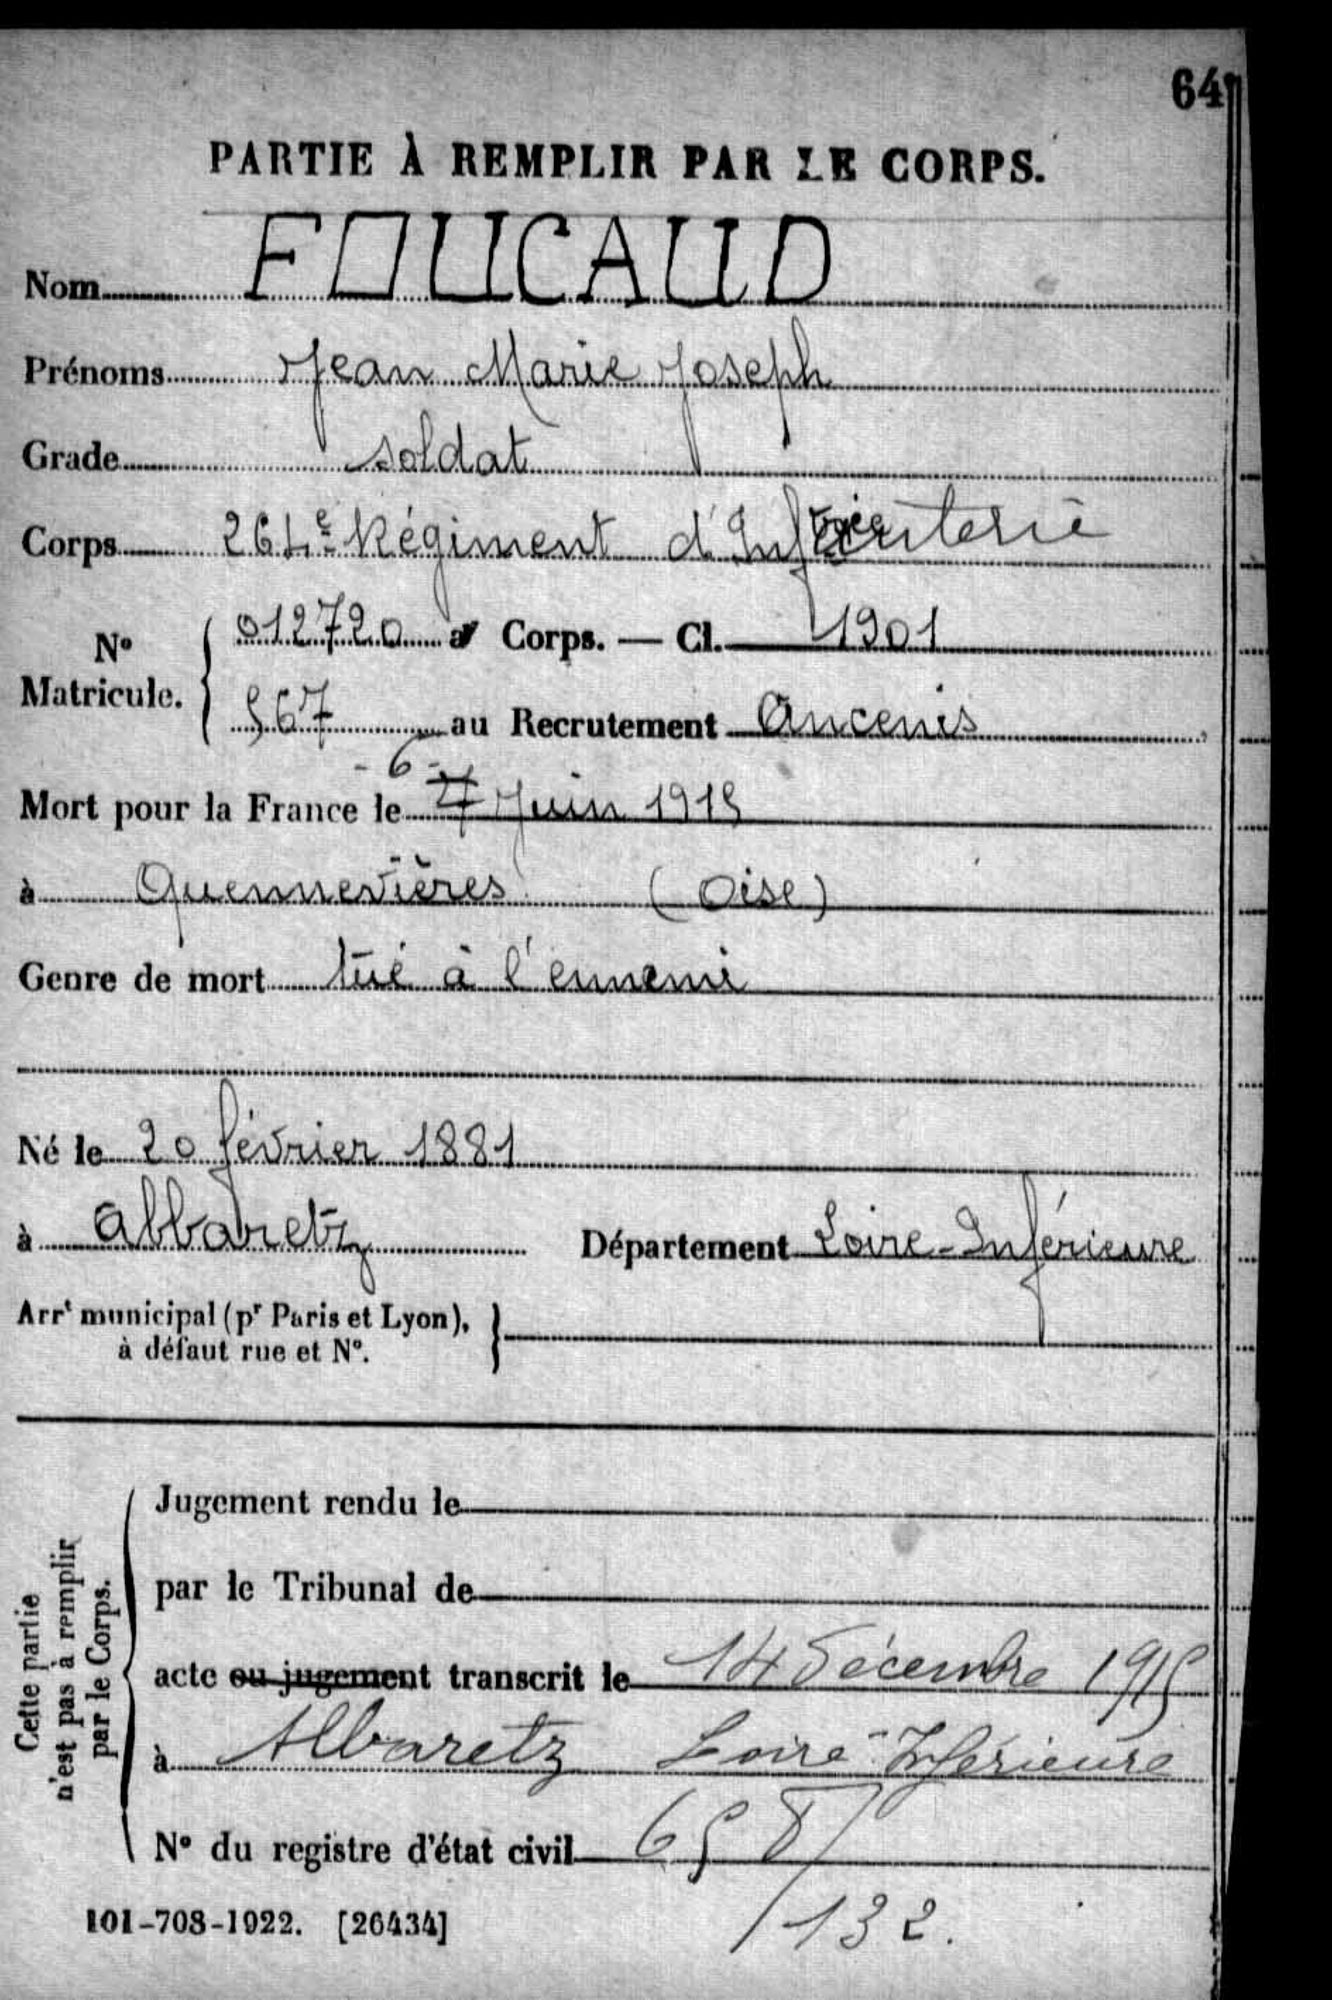 64
PARTIE À REMPLIR PAR LE CORPS.
Nom FOUCAUD
Prénoms Jean Marie Joseph
Grade soldat
Corps 264e Régiment d'Infanterie
No Matricule. 012720 au Corps. — Cl. 1901
567 au Recrutement Ancenis
- 6 -
Mort pour la France le 7 Juin 1915
à Quennevières (Oise)
Genre de mort tué à l'ennemi
Né le 20 février 1881
à Abbaretz Département Loire-Inférieure
Arrt municipal (pr Paris et Lyon),
à défaut rue et No.
Cette partie
n'est pas à remplir
par le Corps.
Jugement rendu le
par le Tribunal de
acte ou jugement transcrit le 14 décembre 1915
à Albaretz Loire-Inférieure
No du registre d'état civil
101-708-1922. [26434]
132.